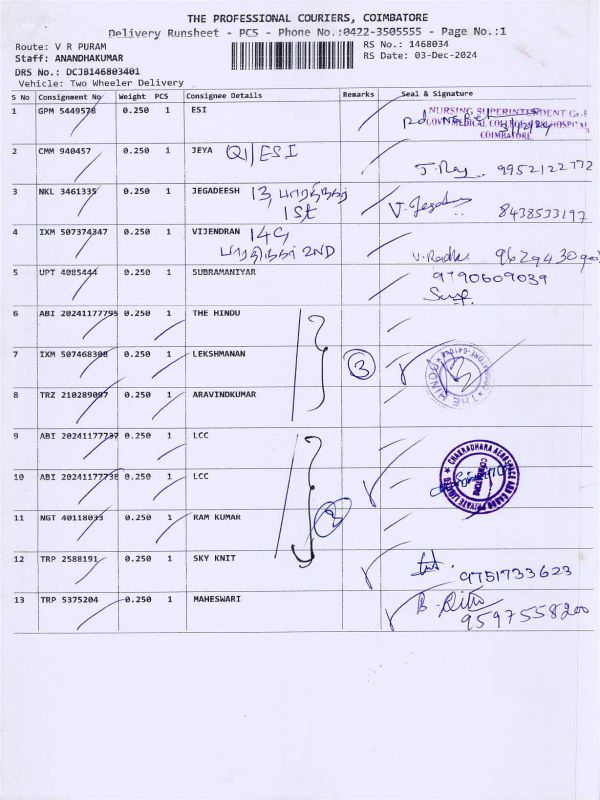 THE PROFESSIONAL COURIERS, COIMBATORE
Delivery Runsheet - PCS - Phone No.:0422-3505555 - Page No.:1
Route: V R PURAM RS No.: 1468034
Staff: ANANDHAKUMAR RS Date: 03-Dec-2024
DRS No.: DCJB146803401
Vehicle: Two Wheeler Delivery
S No Consignment No Weight PCS Consignee Details Remarks Seal & Signature
1 GPM 5449578 0.250 1 ESI
NURSING SUPERINTENDENT Gr-I
GOVT MEDICAL COLLEGE ESI HOSPITAL
COIMBATORE
2 CMM 940457 0.250 1 JEYA Q1/ESI
J. Raj 9952122772
3 NKL 3461335 0.250 1 JEGADEESH 13, பாரதிநகர்
1st V. Jegadees 8438533197
4 IXM 507374347 0.250 1 VIJENDRAN 14G
பாரதிநகர் 2ND V. Radha
5 UPT 4085444 0.250 1 SUBRAMANIYAR 9790609039
6 ABI 20241177795 0.250 1 THE HINDU
7 IXM 507468308 0.250 1 LEKSHMANAN 3 THE HINDU
8 TRZ 210289097 0.250 1 ARAVINDKUMAR
9 ABI 20241177737 0.250 1 LCC
10 ABI 20241177738 0.250 1 LCC CHAKRADHARA AEROSPACE AND CARGO PRIVATE LIMITED
COIMBATORE
11 NGT 40118033 0.250 1 RAM KUMAR 3
12 TRP 2588191 0.250 1 SKY KNIT 9751733623
13 TRP 5375204 0.250 1 MAHESWARI B.
9597558200